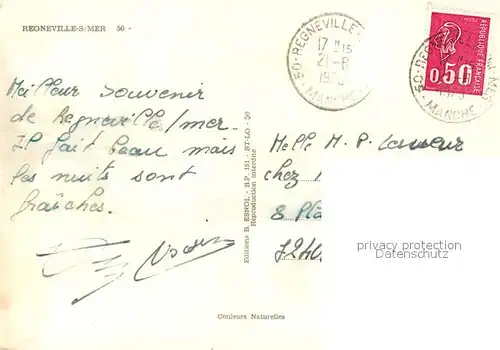 REGNEVILLE-S/MER 50 -
50-REGNEVILLE
17 H15
21-8
MANCHE
REPUBLIQUE FRANÇAISE
0,50
50-REGNEV
MER
MANCHE
Meilleur souvenir
de Regneville/mer.
Il fait beau mais
les nuits sont
fraîches.
Editions B. ESNOL - B.P. 151 - ST-LO - 50
Reproduction interdite
Melle M. P.
chez
8 Pla
7240
privacy protection
Datenschutz
Couleurs Naturelles